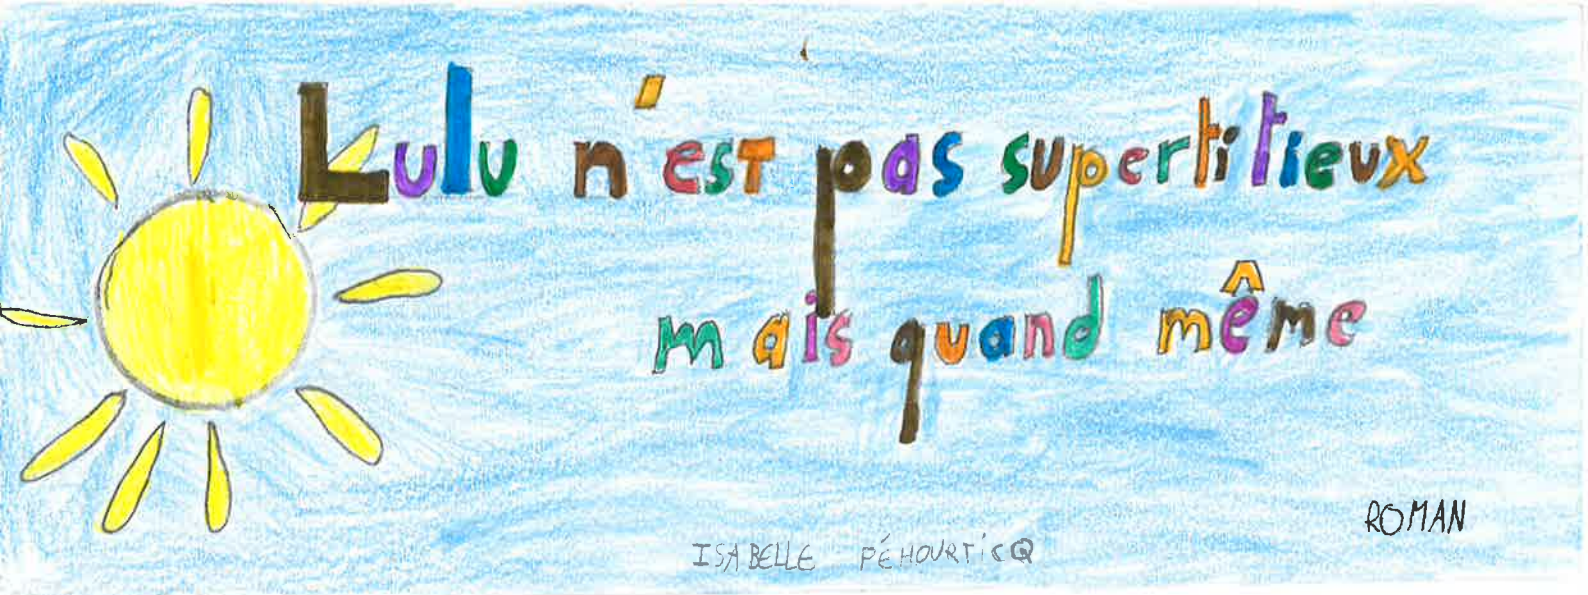 Lulu n'est pas supertitieux
mais quand même
ROMAN
ISABELLE PÉHOURTICQ